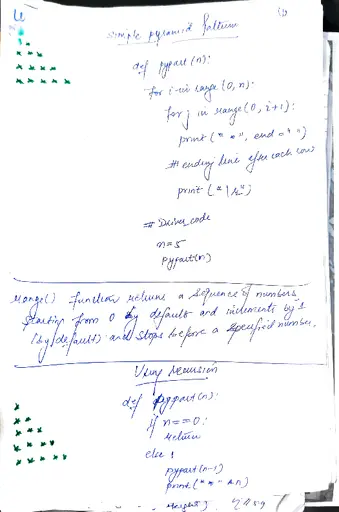 Simple pyramid pattern
def pypart(n):
for i in range (0, n):
for j in range (0, i+1):
print ("*", end = " ")
# ending line after each row
print ("\r")
# Driver code
n=5
pypart(n)
range() function returns a sequence of numbers,
starting from 0 by default and increments by 1
(by default) and stops before a specified number.
Using recursion
def pypart(n):
if n==0:
return
else:
pypart(n-1)
print ("*" * n)